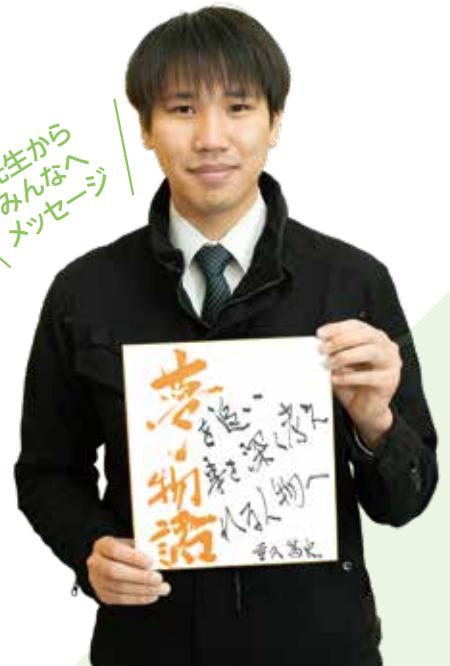 先生から
みんなへ
メッセージ
夢・物語
を追い
事を深く考え
れる人物へ